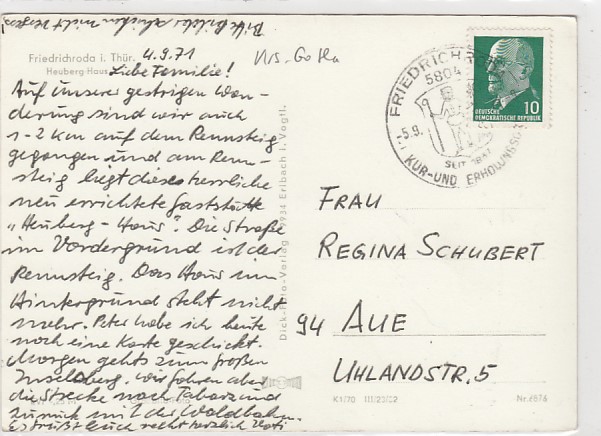 Bitte Bilder schicken nicht vergessen
Friedrichroda i. Thür. 4.9.71
Heuberg-Haus Liebe Familie!
Auf unserer gestrigen Wan-
derung sind wir auch
1-2 km auf dem Rennsteig
gegangen und am Renn-
steig liegt dieses herrliche
neu errichtete Gaststätte
"Heuberg-Haus". Die Straße
im Vordergrund ist der
Rennsteig. Das Haus im
Hintergrund steht nicht
mehr. Peter habe ich heute
noch eine Karte geschickt.
Morgen gehts zum großen
Inselsberg. Wir fahren aber
die Strecke nach Tabarz und
zurück mit der Waldbahn.
Es grüßt Euch recht herzlich Vati
Krs. Gotha
Dick-Foto-Verlag 9934 Erlbach i. Vogtl.
FRIEDRICHRODA
5804
-5.9.
SEIT
KUR-UND ERHOLUNGSORT
DEUTSCHE
DEMOKRATISCHE REPUBLIK
10
FRAU
REGINA SCHUBERT
94 AUE
UHLANDSTR. 5
K1/70 III/23/22
Nr. 6876